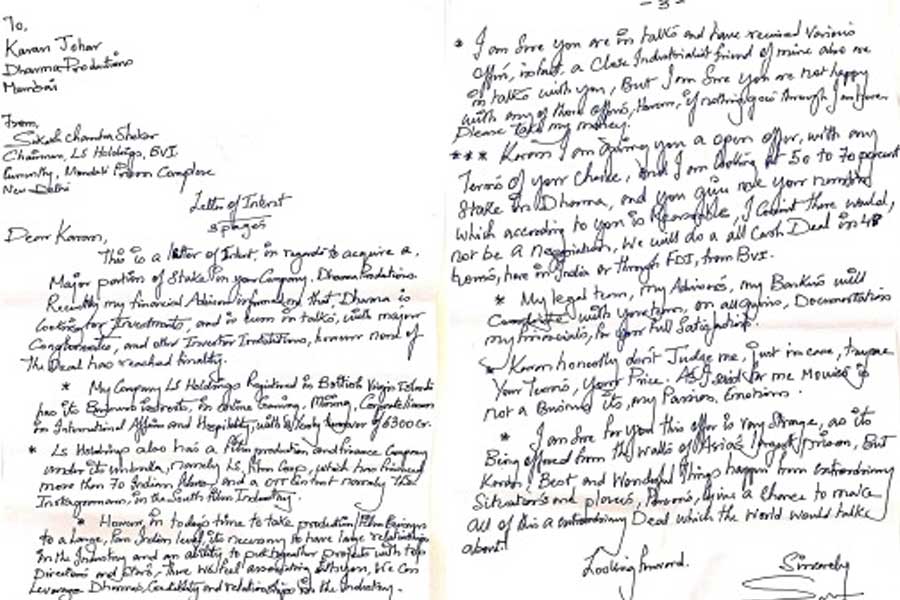 To,
Karan Johar
Dharma Productions
Mumbai
From,
Sukash Chandra Shekar
Chairman, LS Holdings, BVI.
Currently, Mandoli Prison Complex
New Delhi
Letter of Interst
3 pages
Dear Karan,
This is a letter of Intent, in regards to acquire a
Major portion of Stake in your Company, Dharma Produtions.
Recently my financial Advisor informed me that Dharma is
looking for Investments, and is been in talks, with major
Conglomerates, and other Investor Institutions, however none of
the Deal has reached finality.
* My Company LS Holdings Registered in British Virgin Islands
has its Business interests, in online Gaming, Mining, Corporate
in International Affairs and Hospitality, with yearly turnover of 6300 cr.
* LS Holdings also has a Film production and finance Company
under its umbrella, namely LS, Film Corp, which has financed
more than 70 Indian films and a OTT Content namely the
in the South Film Industry.
* However, in today's time to take production/Film Business
to a Large, Pan Indian level, its necessary to have large relationships
in the Industry and an ability to put together projects with top
Directors and Stars, there we feel associating with you, We can
Leverage Dharma's, Credibility and relationships in the Industry.
- 3 -
* I am Sure you are in talks and have received Various
offers, infact, a Close Industrialist friend of mine also are
in talks with you, But I am Sure you are not happy
with any of those offers, However, if nothing goes through I am
Please take my money.
*** Karan I am giving you a open offer, with any
Terms of your choice, and I am looking at 50 to 70 percent
Stake in Dharma, and you give me your number
which according to you is Reasonable, I there would,
not be a negotiation. We will do a all Cash Deal in 48
hours, here in India or through FDI, from BVI.
* My legal team, my Advisors, my Bankers will
with your team, on all queries, Documentation
my financials, for your full Satisfaction.
* Karan honestly don't Judge me, just in case,
Your Terms, Your Price. As I said for me Movies is
not a Business its, my Passion, Emotions.
* I am Sure for you this offer is very Strange, as its
Being offered from the walls of Asia's largest prison, But
Karan! Best and Wonderful Things happen from extraordinary
Situations and places, give a Chance to make
all of this a extraordinary Deal which the World would talk
about!
Looking forward.
Sincerely